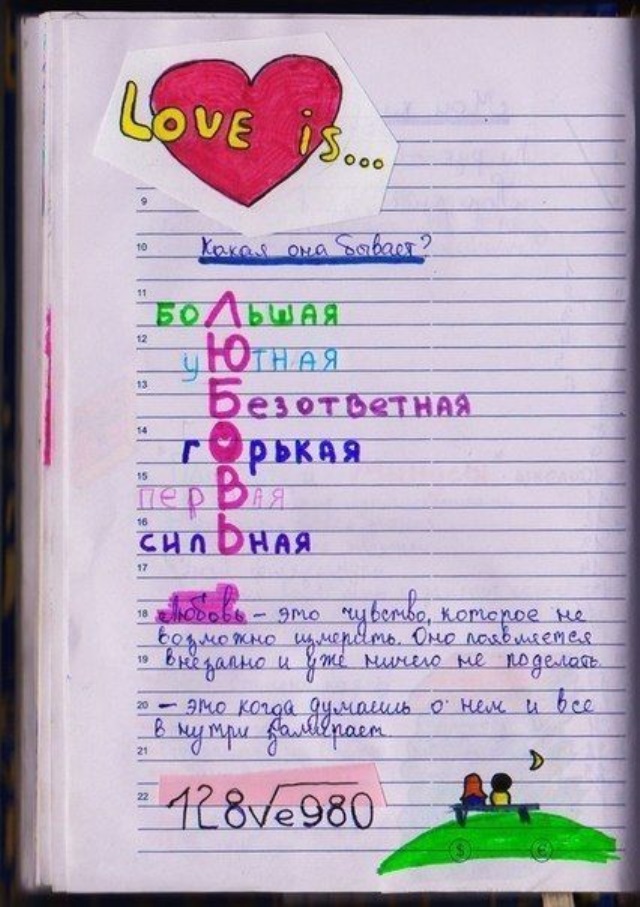 LOVE is...
9
10 Какая она бывает?
11
БОЛЬШАЯ
12
уЮТНАЯ
13
Безответная
14
гОрькая
15
перВая
16
силЬная
17
18 Любовь – это чувство, которое не
возможно измерить. Оно появляется
19 внезапно и уже ничего не поделать.
20 – это когда думаешь о нем и все
в нутри замирает
21
22 128√e980
$ €